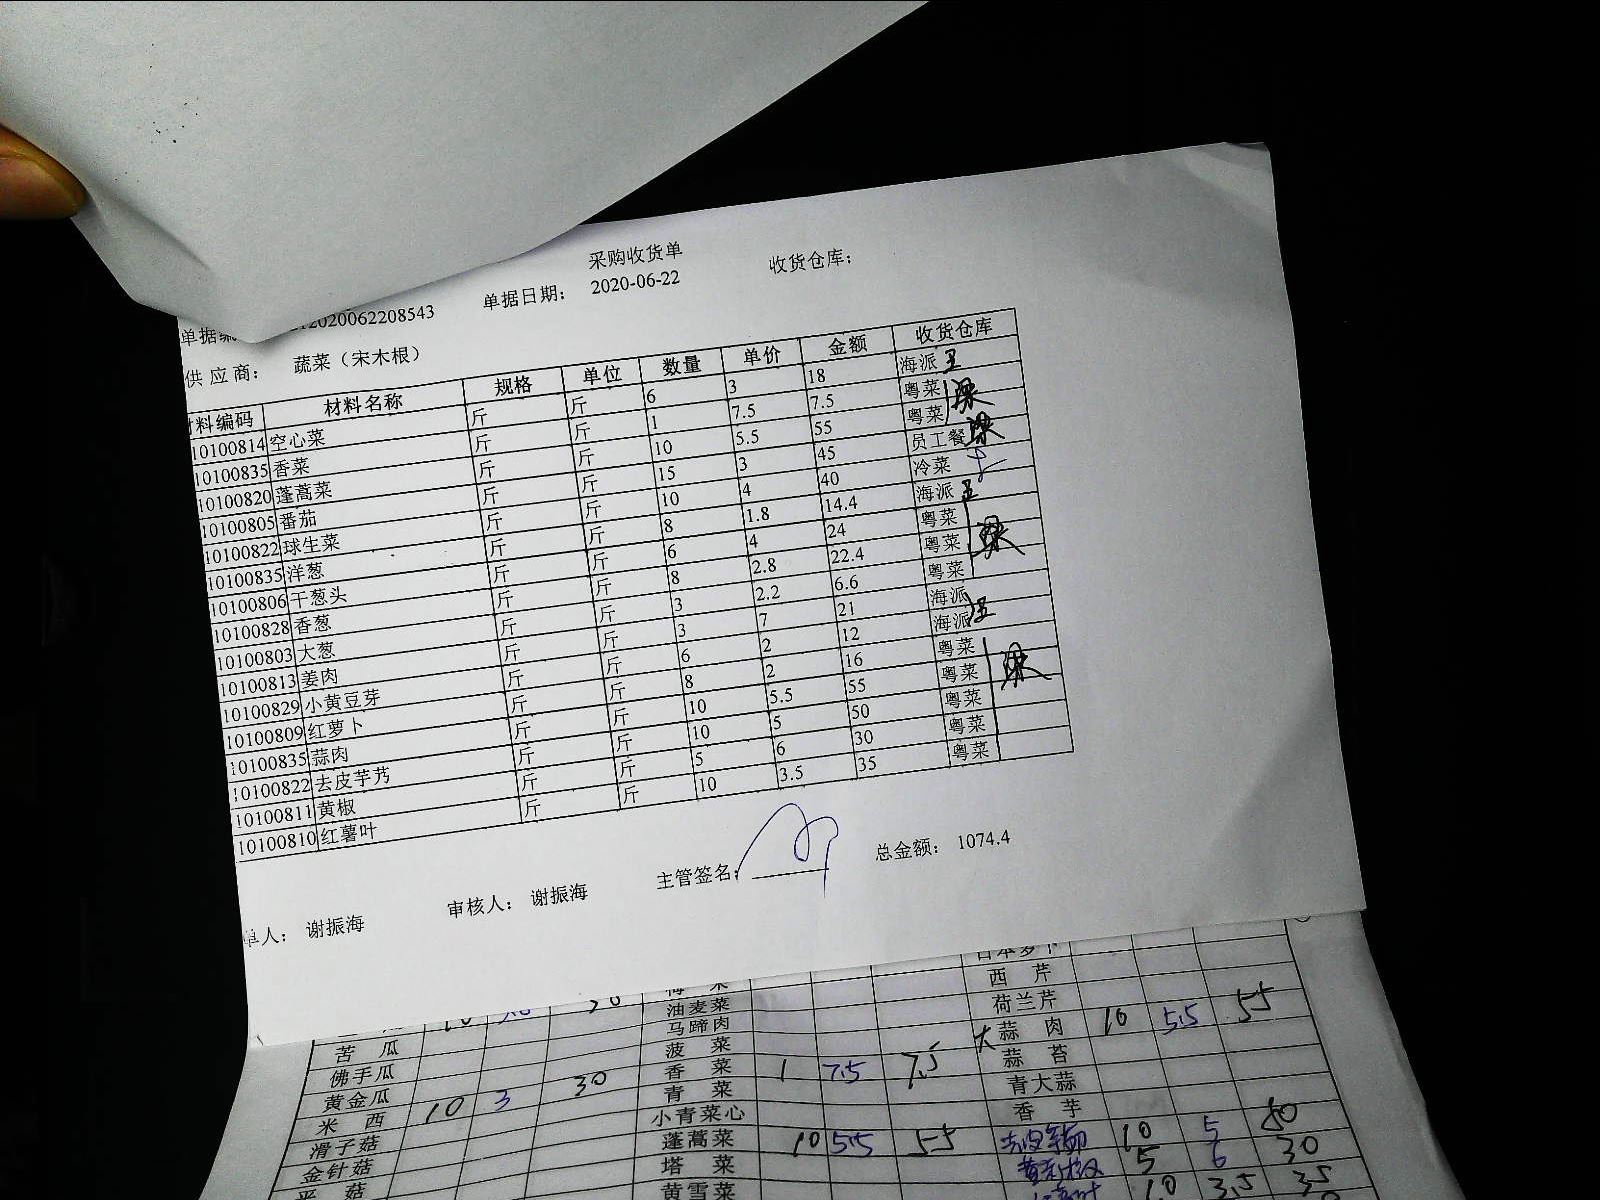 采购收货单
单据 2020062208543 单据日期： 2020-06-22 收货仓库：
供应商： 蔬菜（宋木根）
料编码 材料名称 规格 单位 数量 单价 金额 收货仓库
10100814 空心菜 斤 斤 6 3 18 海派 王
10100835 香菜 斤 斤 1 7.5 7.5 粤菜 梁
10100820 蓬蒿菜 斤 斤 10 5.5 55 粤菜
10100805 番茄 斤 斤 15 3 45 员工餐 梁
10100822 球生菜 斤 斤 10 4 40 冷菜
10100835 洋葱 斤 斤 8 1.8 14.4 海派 王
10100806 干葱头 斤 斤 6 4 24 粤菜
10100828 香葱 斤 斤 8 2.8 22.4 粤菜 梁
10100803 大葱 斤 斤 3 2.2 6.6 粤菜
10100813 姜肉 斤 斤 3 7 21 海派
10100829 小黄豆芽 斤 斤 6 2 12 海派 王
10100809 红萝卜 斤 斤 8 2 16 粤菜
10100835 蒜肉 斤 斤 10 5.5 55 粤菜 梁
10100822 去皮芋艿 斤 斤 10 5 50 粤菜
10100811 黄椒 斤 斤 5 6 30 粤菜
10100810 红薯叶 斤 斤 10 3.5 35 粤菜
单人： 谢振海 审核人： 谢振海 主管签名： 总金额： 1074.4
日本萝卜
西芹
油麦菜 荷兰芹
苦瓜 马蹄肉 大蒜肉 10 5.5 55
佛手瓜 菠菜 蒜苔
黄金瓜 香菜 1 7.5 7.5 青大蒜
米西 10 3 30 青菜 香芋
滑子菇 小青菜心 去皮芋艿 10 5 50
金针菇 蓬蒿菜 10 5.5 55 黄椒 5 6 30
平菇 塔菜 10 3.5 35
黄雪菜